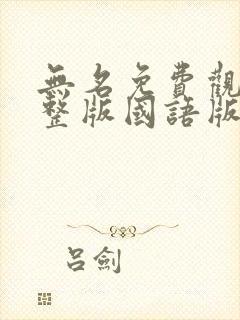 無名免費觀
整版國語版
呂劍